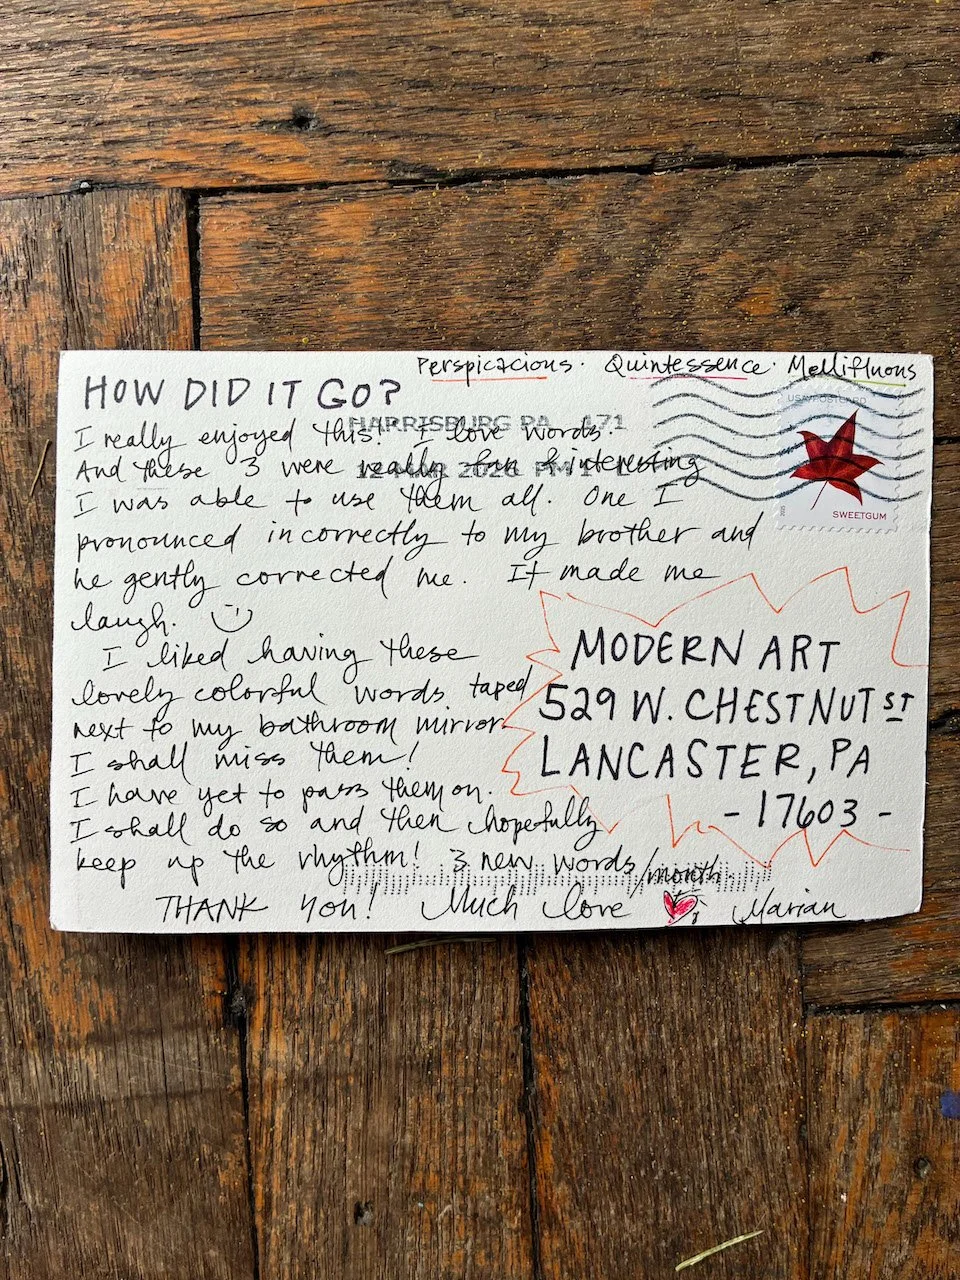 Perspicacious · Quintessence · Mellifluous
HOW DID IT GO?
USA POSTCARD
HARRISBURG PA 171
12 MAR 2026 PM 1 L
SWEETGUM
I really enjoyed this! I love words.
And these 3 were really fun & interesting
I was able to use them all. One I
pronounced incorrectly to my brother and
he gently corrected me. It made me
laugh.
I liked having these
lovely colorful words taped
next to my bathroom mirror
I shall miss them!
I have yet to pass them on.
I shall do so and then hopefully
keep up the rhythm! 3 new words/month.
THANK YOU! Much love Marian
MODERN ART
529 W. CHESTNUT ST
LANCASTER, PA
- 17603 -